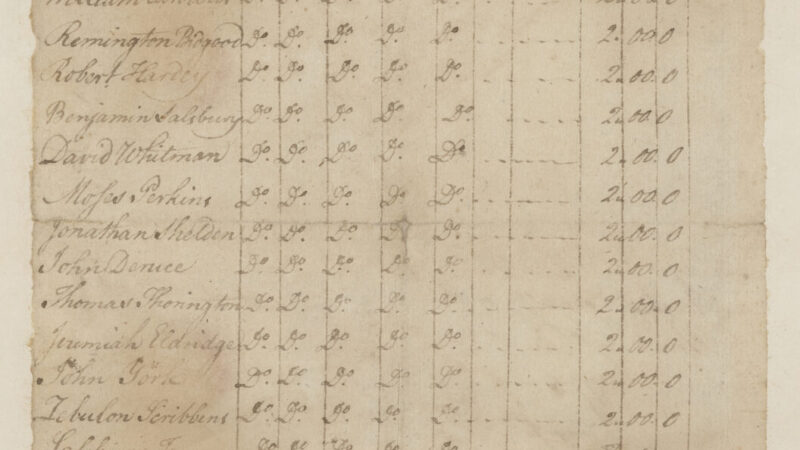 Remington Bidgood Do. Do. Do. Do. Do. 2"00.0
Robert Hardey Do. Do. Do. Do. Do. 2"00.0
Benjamin Salsbury Do. Do. Do. Do. Do. 2"00.0
David Whitman Do. Do. Do. Do. Do. 2"00.0
Moses Perkins Do. Do. Do. Do. Do. 2"00.0
Jonathan Shelden Do. Do. Do. Do. Do. 2"00.0
John Denice Do. Do. Do. Do. Do. 2"00.0
Thomas Thorington Do. Do. Do. Do. Do. 2"00.0
Jeremiah Eldridge Do. Do. Do. Do. Do. 2"00.0
John York Do. Do. Do. Do. Do. 2"00.0
Zebulon Scribbens Do. Do. Do. Do. Do. 2"00.0